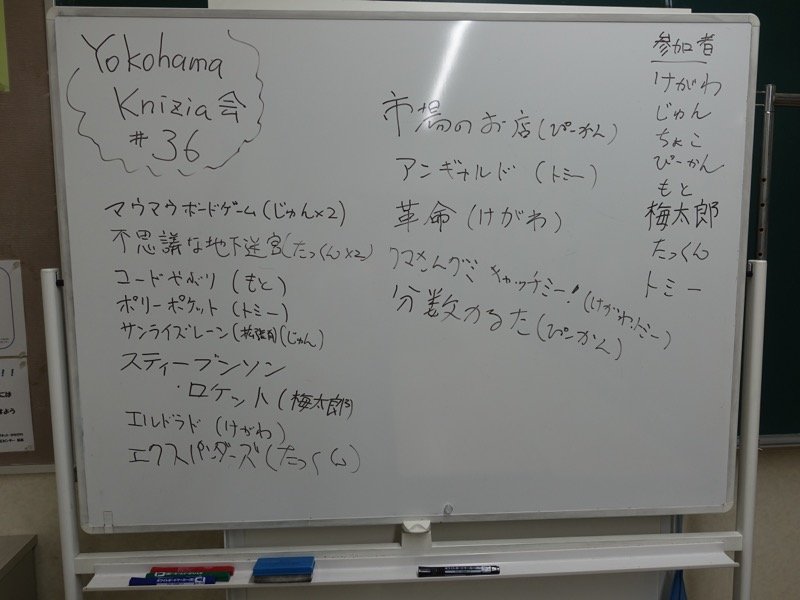 Yokohama
Knizia会
#36
マウマウボードゲーム(じゅん×2)
不思議な地下迷宮(たっくん×2)
コードやぶり (もと)
ポリーポケット (トミー)
サンライズレーン(拡張用)(じゅん)
スティーブンソン
・ロケット(梅太郎)
エルドラド (けがわ)
エクスパンダーズ(たっくん)
市場のお店(ぴーかん)
アンギャルド (トミー)
革命(けがわ)
クマさんグミ キャッチミー!(けがわ、トミー)
分数かるた(ぴーかん)
参加者
けがわ
じゅん
ちょこ
ぴーかん
もと
梅太郎
たっくん
トミー